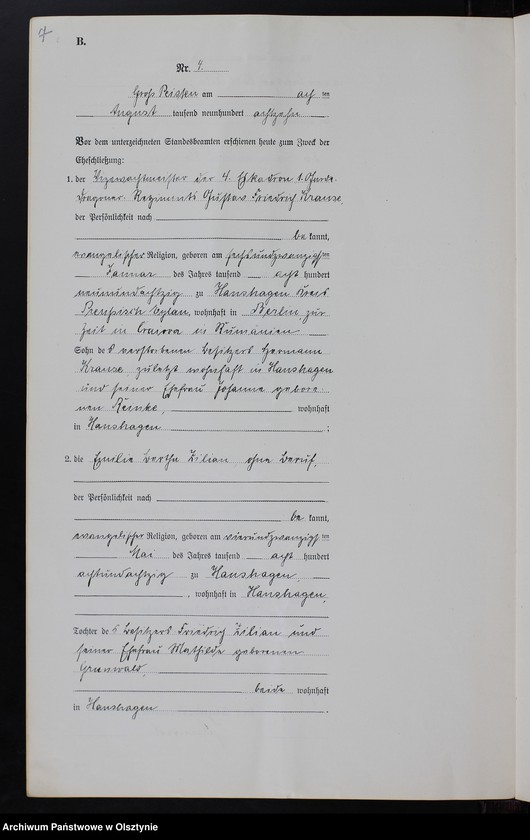 4
B.
Nr. 4.
Groß Peisten am ach ten
August tausend neunhundert achtzehn
Vor dem unterzeichneten Standesbeamten erschienen heute zum Zweck der
Eheschließung:
1. der Vizewachtmeister der 4. Eskadron 1. Garde-
Dragoner Regiments Gustav Friedrich Krause,
der Persönlichkeit nach
be kannt,
evangelischer Religion, geboren am sechsundzwanzigsten
Januar des Jahres tausend acht hundert
neunundachtzig zu Hanshagen Kreis
Preußisch Eylau, wohnhaft in Berlin, zur
Zeit in Craiova in Rumänien
Sohn des verstorbenen Besitzers Hermann
Krause, zuletzt wohnhaft in Hanshagen
und seiner Ehefrau Johanne gebore-
nen Reinke, wohnhaft
in Hanshagen ;
2. die Emilie Bertha Zilian, ohne Beruf,
der Persönlichkeit nach
be kannt,
evangelischer Religion, geboren am vierundzwanzigsten
Mai des Jahres tausend acht hundert
achtundachtzig zu Hanshagen,
, wohnhaft in Hanshagen,
Tochter des Besitzers Friedrich Zilian und
seiner Ehefrau Mathilde geborenen
Grunwald,
beide wohnhaft
in Hanshagen .
Archiwum Państwowe w Olsztynie